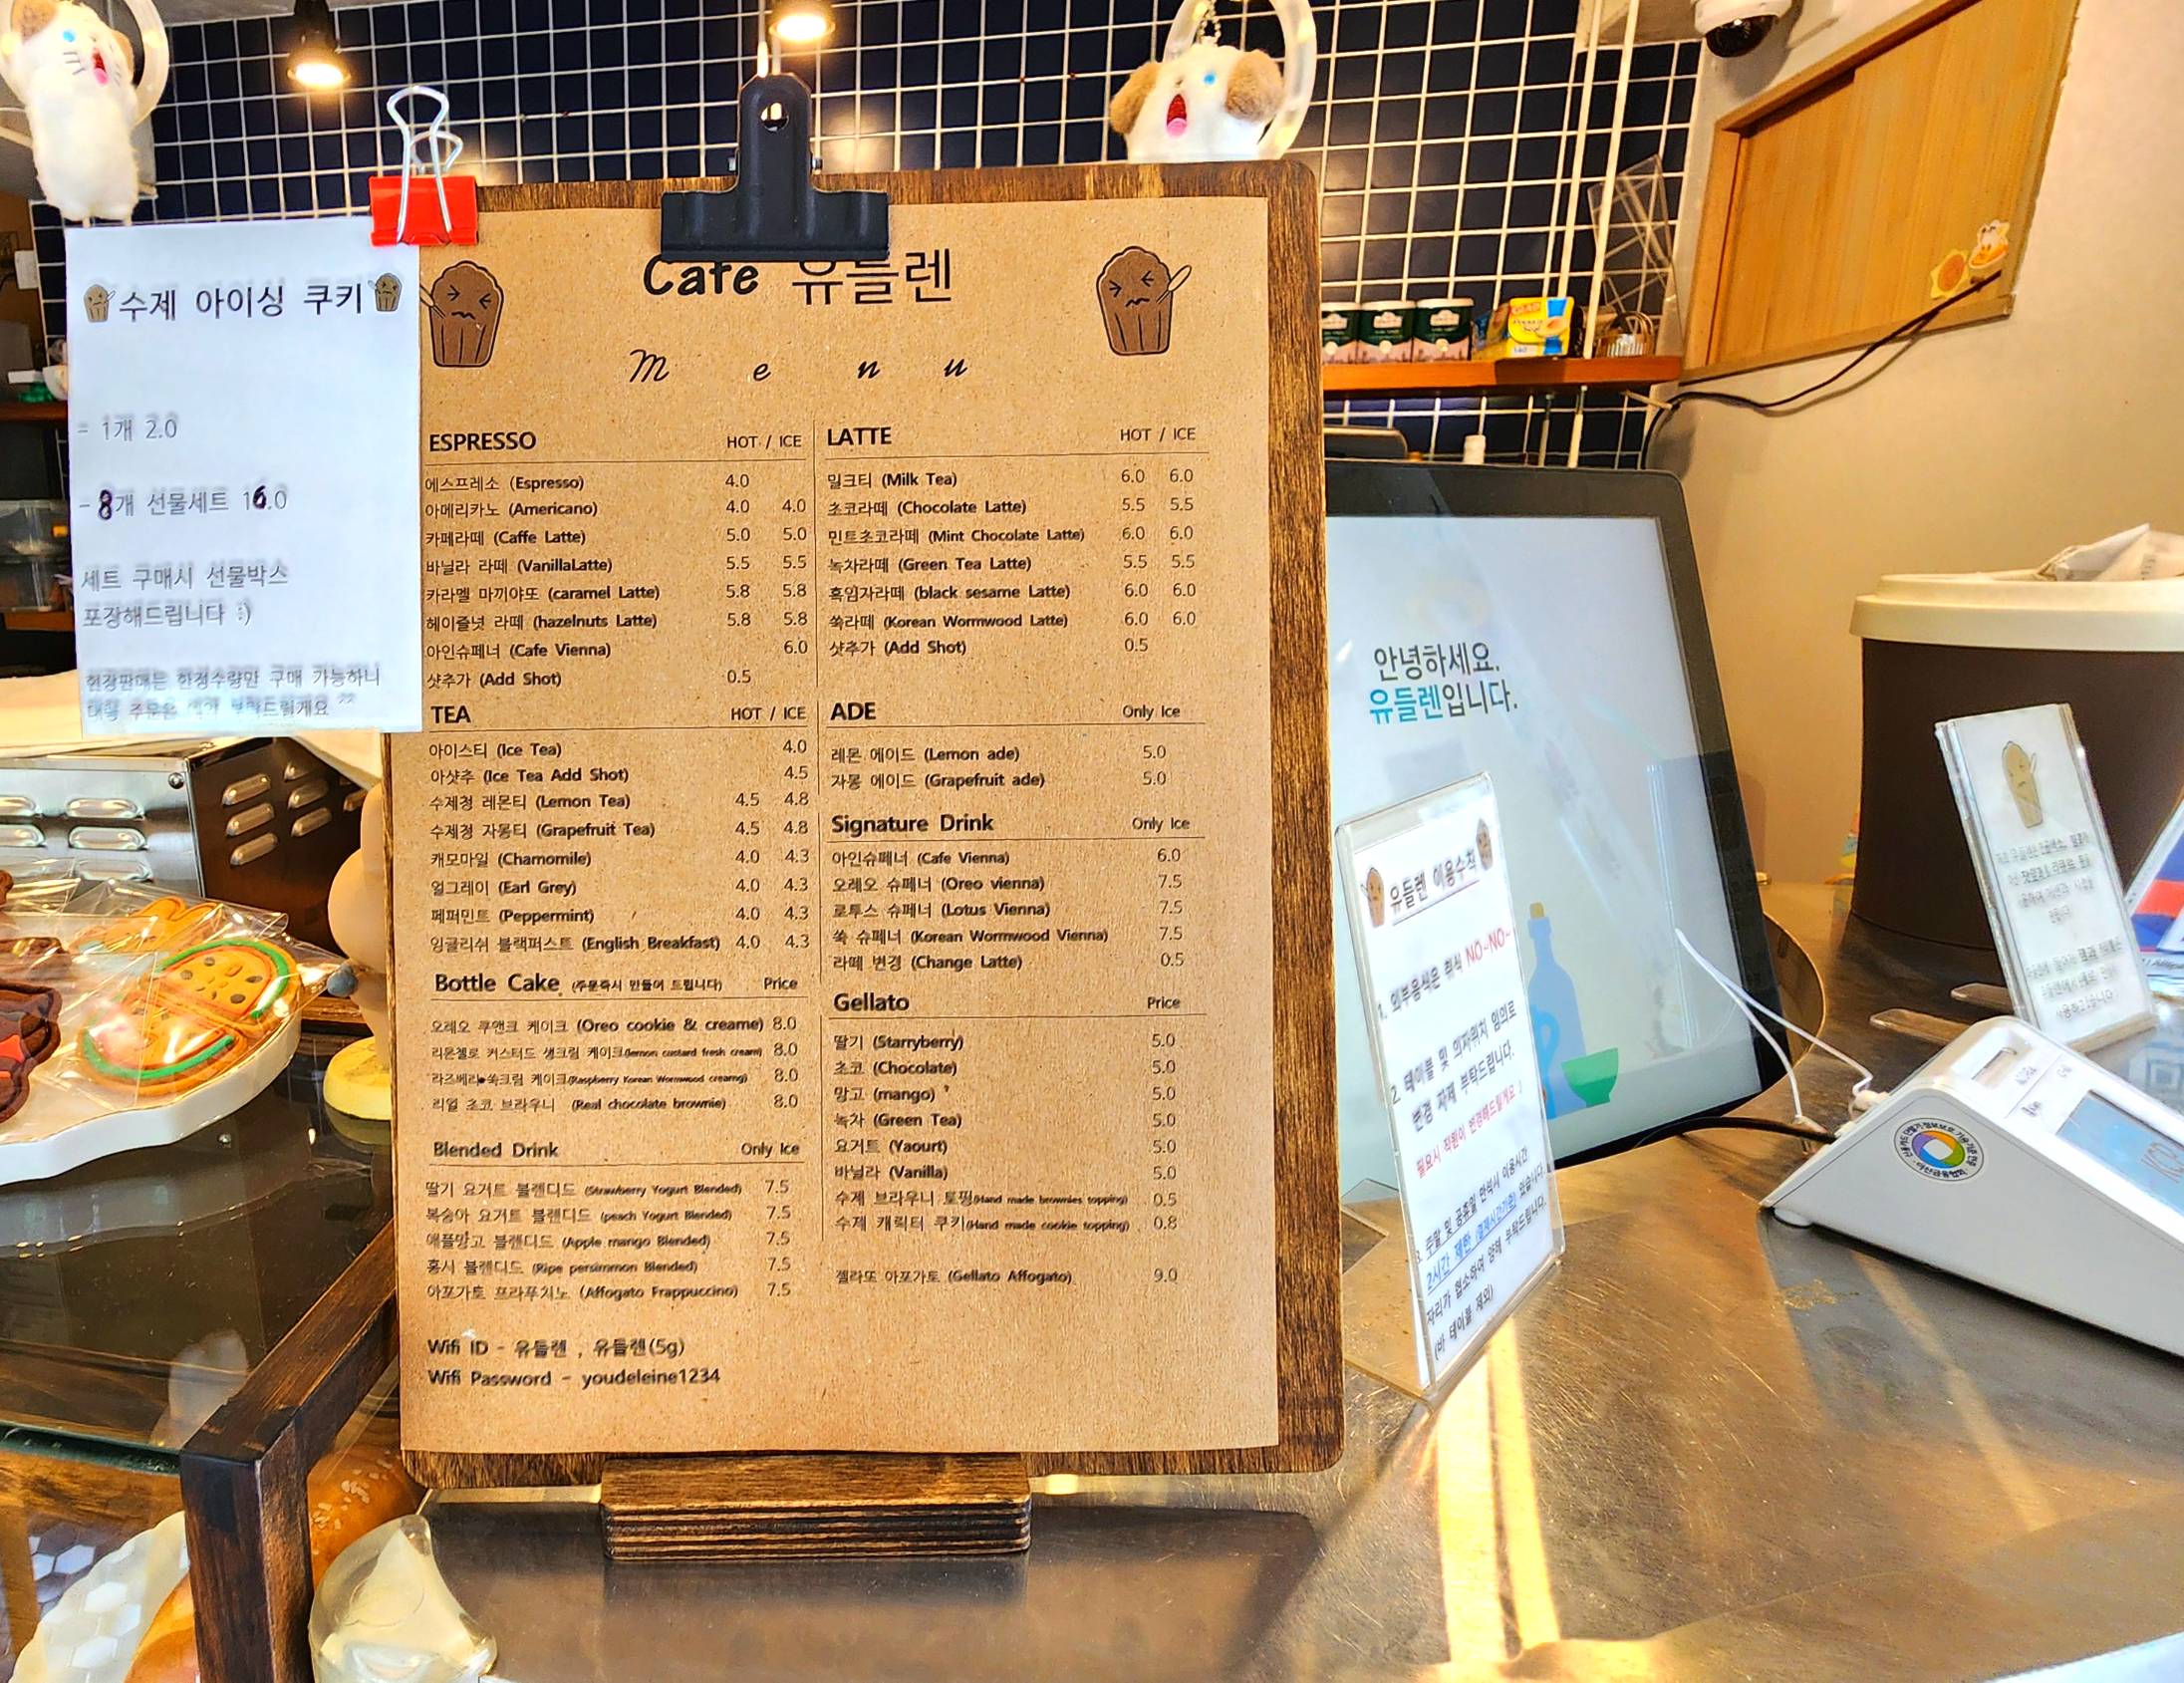 수제 아이싱 쿠키
- 1개 2.0
- 8개 선물세트 16.0
세트 구매시 선물박스
포장해드립니다 :)
현장판매는 한정수량만 구매 가능하니
대량 주문은 예약 부탁드릴게요 ^^
Cafe 유들렌
Menu
ESPRESSO HOT / ICE
에스프레소 (Espresso) 4.0
아메리카노 (Americano) 4.0 4.0
카페라떼 (Caffe Latte) 5.0 5.0
바닐라 라떼 (VanillaLatte) 5.5 5.5
카라멜 마끼야또 (caramel Latte) 5.8 5.8
헤이즐넛 라떼 (hazelnuts Latte) 5.8 5.8
아인슈페너 (Cafe Vienna) 6.0
샷추가 (Add Shot) 0.5
TEA HOT / ICE
아이스티 (Ice Tea) 4.0
아샷추 (Ice Tea Add Shot) 4.5
수제청 레몬티 (Lemon Tea) 4.5 4.8
수제청 자몽티 (Grapefruit Tea) 4.5 4.8
캐모마일 (Chamomile) 4.0 4.3
얼그레이 (Earl Grey) 4.0 4.3
페퍼민트 (Peppermint) 4.0 4.3
잉글리쉬 블랙퍼스트 (English Breakfast) 4.0 4.3
Bottle Cake (주문즉시 만들어 드립니다) Price
오레오 쿠앤크 케이크 (Oreo cookie & creame) 8.0
리몬첼로 커스터드 생크림 케이크(lemon custard fresh cream) 8.0
라즈베리 쑥크림 케이크(Raspberry Korean Wormwood creamg) 8.0
리얼 초코 브라우니 (Real chocolate brownie) 8.0
Blended Drink Only Ice
딸기 요거트 블렌디드 (Strawberry Yogurt Blended) 7.5
복숭아 요거트 블렌디드 (peach Yogurt Blended) 7.5
애플망고 블렌디드 (Apple mango Blended) 7.5
홍시 블렌디드 (Ripe persimmon Blended) 7.5
아포가토 프라푸치노 (Affogato Frappuccino) 7.5
Wifi ID - 유들렌 , 유들렌(5g)
Wifi Password - youdeleine1234
LATTE HOT / ICE
밀크티 (Milk Tea) 6.0 6.0
초코라떼 (Chocolate Latte) 5.5 5.5
민트초코라떼 (Mint Chocolate Latte) 6.0 6.0
녹차라떼 (Green Tea Latte) 5.5 5.5
흑임자라떼 (black sesame Latte) 6.0 6.0
쑥라떼 (Korean Wormwood Latte) 6.0 6.0
샷추가 (Add Shot) 0.5
ADE Only Ice
레몬 에이드 (Lemon ade) 5.0
자몽 에이드 (Grapefruit ade) 5.0
Signature Drink Only Ice
아인슈페너 (Cafe Vienna) 6.0
오레오 슈페너 (Oreo vienna) 7.5
로투스 슈페너 (Lotus Vienna) 7.5
쑥 슈페너 (Korean Wormwood Vienna) 7.5
라떼 변경 (Change Latte) 0.5
Gellato Price
딸기 (Starryberry) 5.0
초코 (Chocolate) 5.0
망고 (mango) 5.0
녹차 (Green Tea) 5.0
요거트 (Yaourt) 5.0
바닐라 (Vanilla) 5.0
수제 브라우니 토핑(Hand made brownies topping) 0.5
수제 캐릭터 쿠키(Hand made cookie topping) 0.8
젤라또 아포가토 (Gellato Affogato) 9.0
안녕하세요.
유들렌입니다.
유들렌 이용수칙
1. 외부음식은 취식 NO-NO-
2. 테이블 및 의자위치 임의로
변경 자제 부탁드립니다.
필요시 직원이 변경해드릴게요 :)
3. 주말 및 공휴일 만석시 이용시간
2시간 제한 (결제시간기준) 있습니다.
자리가 협소하여 양해 부탁드립니다.
(바 테이블 제외)